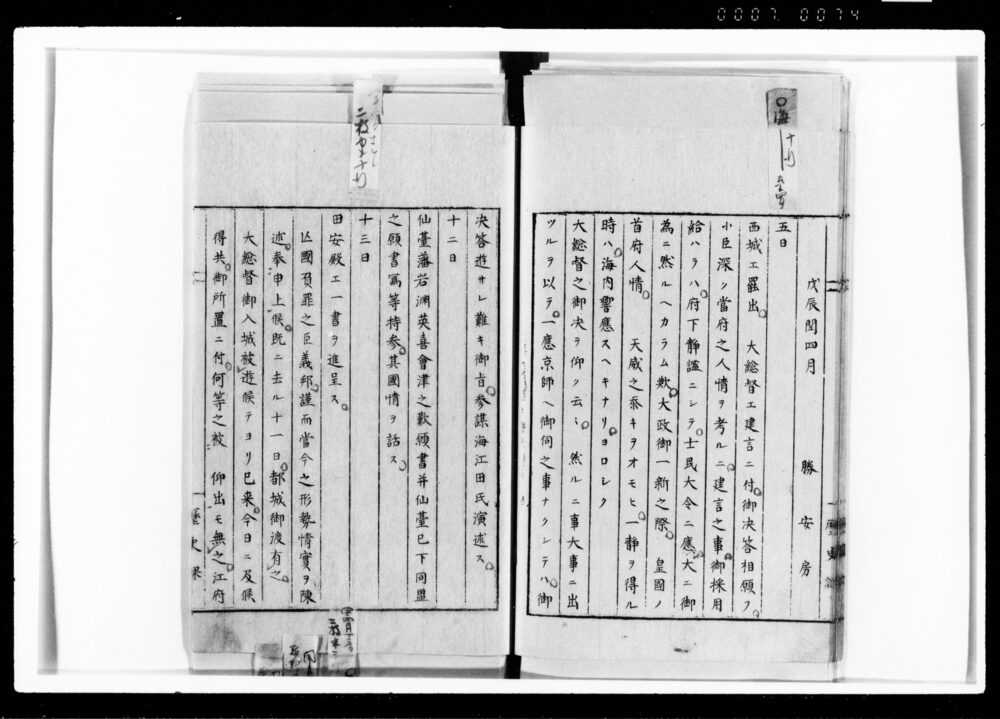 0007 0074
海
十行
戊辰閏四月　勝安房
五日
西城エ罷出　大総督エ建言ニ付御決答相願フ
小臣深ク當府之人情ヲ考ルニ建言之事御採用
給ハラハ府下静謐ニシテ士民大令ニ應大ニ御
為ニ然ルヘカラム歟大政御一新之際　皇國ノ
首府人情　天威之忝キヲオモヒ一静ヲ得ル
時ハ海内響應スヘキナリヨロシク
大総督之御决ヲ仰ク云ミ　然ルニ事大事ニ出
ツルヲ以テ一應京師ヘ御伺之事ナクシテハ御
決答遊サレ難キ御旨参謀海江田氏演述ス
十二日
仙臺藩若淵英喜會津之歎願書并仙臺已下同盟
之願書寫等持参其國情ヲ話ス
十三日
田安殿エ一書ヲ進呈ス
亾國負罪之臣義邦謹而當今之形勢情實ヲ陳
述奉申上候既ニ去ル十一日都城御渡有之
大総督御入城被遊候テヨリ已来今日ニ及候
得共御所置ニ付何等之被　仰出モ無之江府